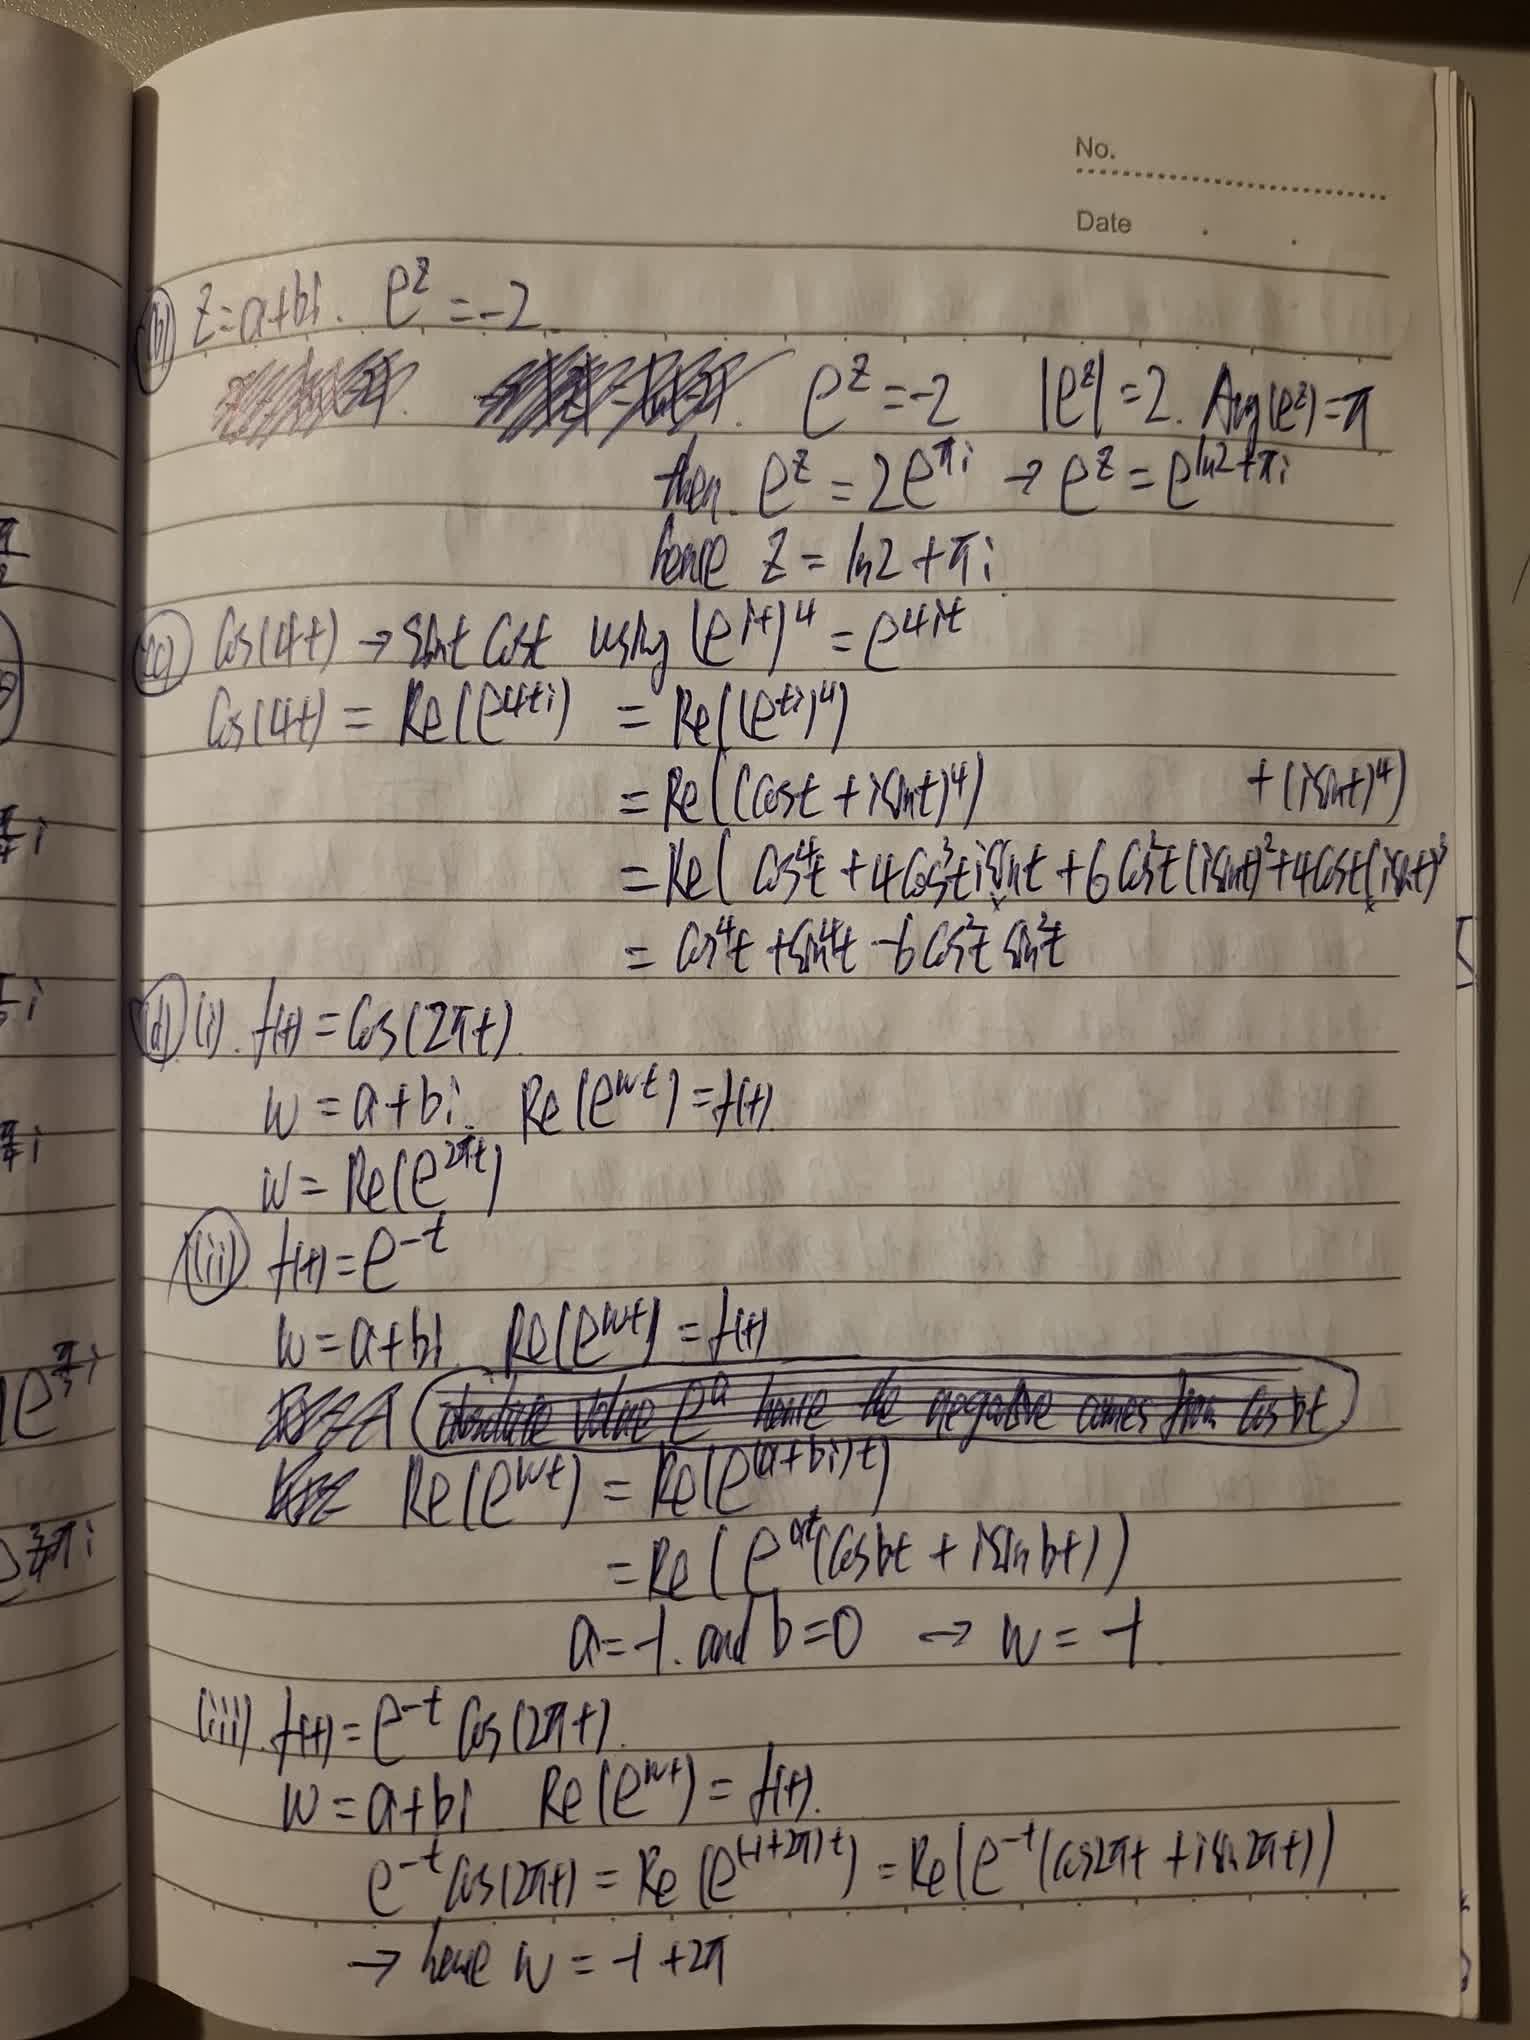 No.
Date
(b) z=a+bi. e^z = -2
e^z = -2 |e^z| = 2. Arg(e^z) = π
then. e^z = 2e^{πi} → e^z = e^{ln2+πi}
hence z = ln2 + πi
(c) Cos(4t) → sint Cost using (e^{it})^4 = e^{4it}
Cos(4t) = Re(e^{4ti}) = Re((e^{ti})^4)
= Re((Cost + isint)^4)
+ (isint)^4)
= Re( Cos^4t + 4Cos^3t isint + 6Cos^2t (isint)^2 + 4Cost(isint)^3
= Cos^4t + sin^4t - 6Cos^2t sin^2t
(d) (i). f(t) = Cos(2πt)
w = a+bi. Re(e^{wt}) = f(t)
w = Re(e^{2πt})
(ii) f(t) = e^{-t}
w = a+bi Re(e^{wt}) = f(t)
absolute value e^a hence the negative comes from Cos bt
Re(e^{wt}) = Re(e^{(a+bi)t})
= Re(e^{at}(Cosbt + isinbt))
a = -1. and b = 0 → w = -1.
(iii). f(t) = e^{-t} Cos(2πt).
w = a+bi Re(e^{wt}) = f(t).
e^{-t} Cos(2πt) = Re(e^{(-1+2π)t}) = Re(e^{-t}(Cos2πt + isin2πt))
→ hence w = -1+2π